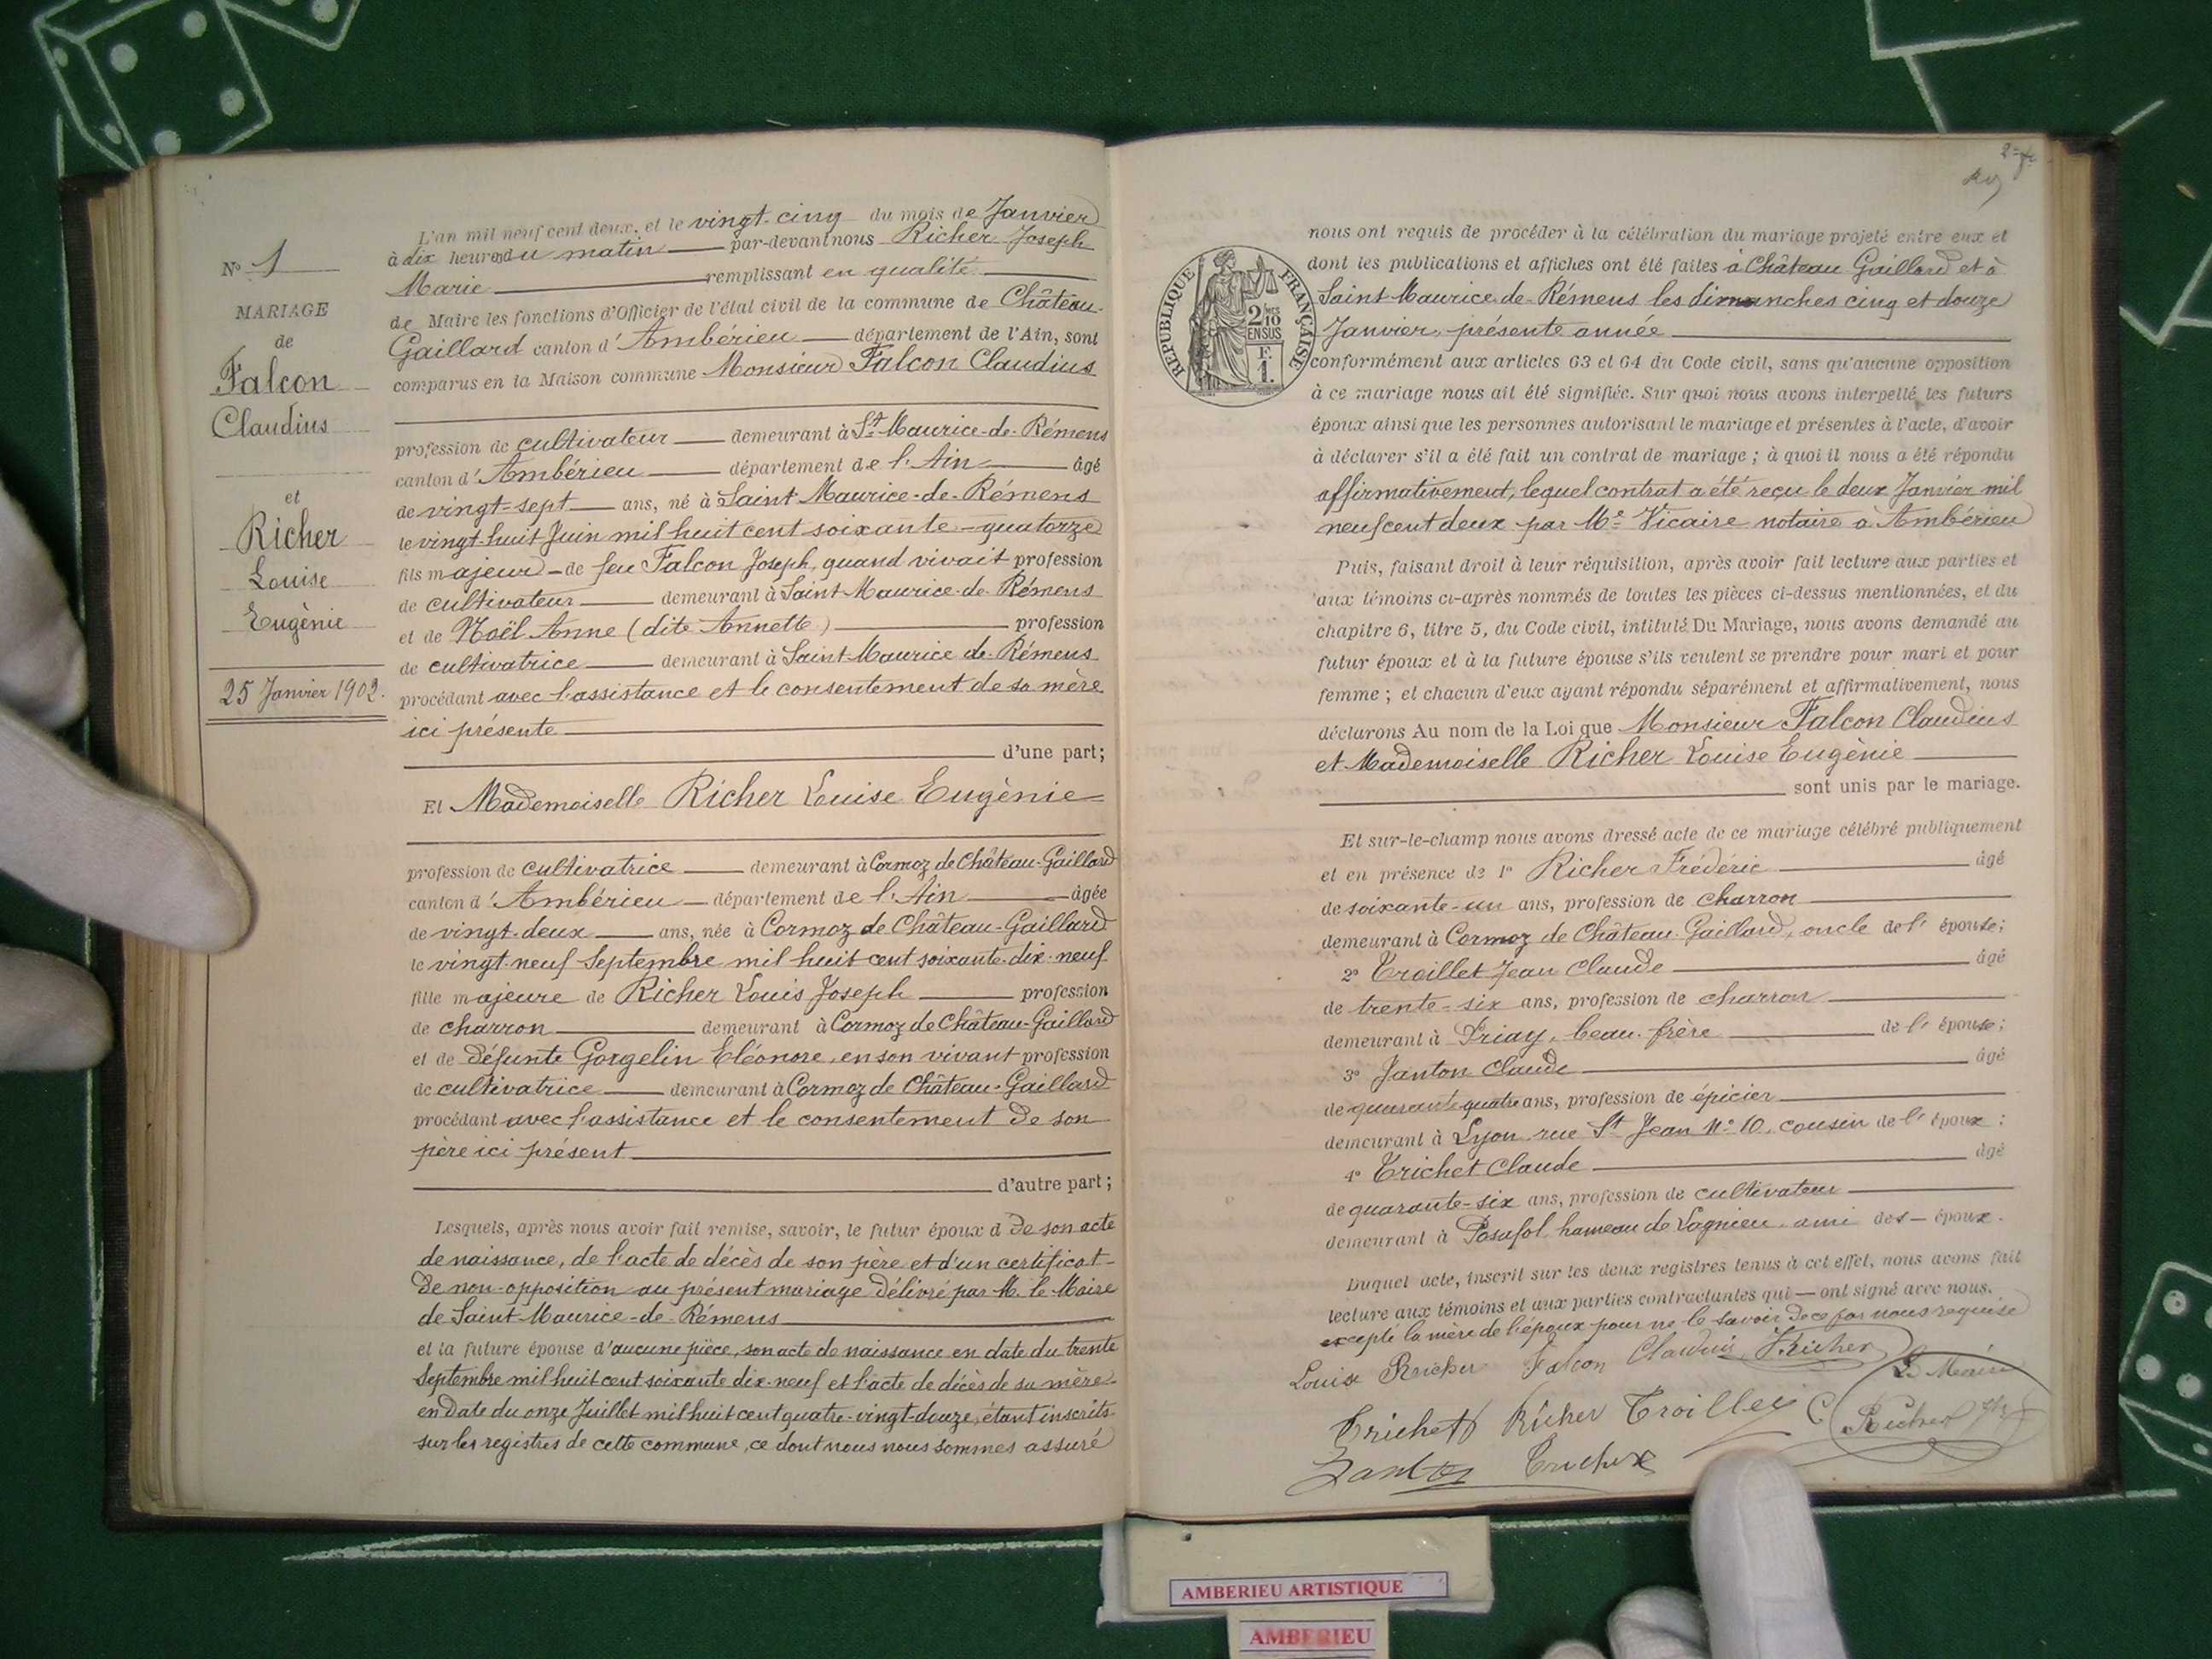 N° 1
MARIAGE
de
Falcon
Claudius
et
Richer
Louise
Eugènie
25 Janvier 1902.
L'an mil neuf cent deux, et le vingt-cinq du mois de Janvier
à dix heures du matin par-devant nous Richer Joseph
Marie remplissant en qualité
de Maire les fonctions d'Officier de l'état civil de la commune de Château-
Gaillard canton d'Ambérieu département de l'Ain, sont
comparus en la Maison commune Monsieur Falcon Claudius
profession de cultivateur demeurant à St-Maurice-de-Rémens
canton d'Ambérieu département de l'Ain âgé
de vingt-sept ans, né à Saint-Maurice-de-Rémens
le vingt-huit Juin mil huit cent soixante-quatorze
fils majeur de feu Falcon Joseph, quand vivait profession
de cultivateur demeurant à Saint-Maurice-de-Rémens
et de Noël Anne (dite Annette) profession
de cultivatrice demeurant à Saint-Maurice de-Rémens
procédant avec l'assistance et le consentement de sa mère
ici présente
d'une part;
Et Mademoiselle Richer Louise Eugènie
profession de cultivatrice demeurant à Cormoz de Château-Gaillard
canton d'Ambérieu département de l'Ain âgée
de vingt-deux ans, née à Cormoz de Château-Gaillard
le vingt-neuf Septembre mil huit cent soixante-dix-neuf
fille majeure de Richer Louis Joseph profession
de charron demeurant à Cormoz de Château-Gaillard
et de défunte Gorgelin Eléonore, en son vivant profession
de cultivatrice demeurant à Cormoz de Château-Gaillard
procédant avec l'assistance et le consentement de son
père ici présent
d'autre part;
Lesquels, après nous avoir fait remise, savoir, le futur époux d de son acte
de naissance, de l'acte de décès de son père et d'un certificat
de non-opposition au présent mariage délivré par M. le Maire
de Saint-Maurice-de-Rémens
et la future épouse d'aucune pièce, son acte de naissance en date du trente
Septembre mil huit cent soixante dix-neuf et l'acte de décès de sa mère
en date du onze Juillet mil huit cent quatre-vingt-douze, étant inscrits
sur les registres de cette commune, ce dont nous nous sommes assuré
RÉPUBLIQUE FRANÇAISE
2 MES
10
EN SUS
F.
1.
nous ont requis de procéder à la célébration du mariage projeté entre eux et
dont les publications et affiches ont été faites à Château Gaillard et à
Saint-Maurice-de-Rémens les dimanches cinq et douze
Janvier, présente année
conformément aux articles 63 et 64 du Code civil, sans qu'aucune opposition
à ce mariage nous ait été signifiée. Sur quoi nous avons interpellé les futurs
époux ainsi que les personnes autorisant le mariage et présentes à l'acte, d'avoir
à déclarer s'il a été fait un contrat de mariage ; à quoi il nous a été répondu
affirmativement, lequel contrat a été reçu le deux Janvier mil
neuf cent deux par Me Vicaire notaire à Ambérieu
Puis, faisant droit à leur réquisition, après avoir fait lecture aux parties et
aux témoins ci-après nommés de toutes les pièces ci-dessus mentionnées, et du
chapitre 6, titre 5, du Code civil, intitulé Du Mariage, nous avons demandé au
futur époux et à la future épouse s'ils veulent se prendre pour mari et pour
femme ; et chacun d'eux ayant répondu séparément et affirmativement, nous
déclarons Au nom de la Loi que Monsieur Falcon Claudius
et Mademoiselle Richer Louise Eugènie
sont unis par le mariage.
Et sur-le-champ nous avons dressé acte de ce mariage célébré publiquement
et en présence de 1° Richer Frédéric âgé
de soixante-un ans, profession de charron
demeurant à Cormoz de Château-Gaillard, oncle de l'épouse;
2° Troillet Jean Claude âgé
de trente-six ans, profession de charron
demeurant à Priay, beau-frère de l'épouse;
3° Janton Claude âgé
de quarante quatre ans, profession de épicier
demeurant à Lyon rue St Jean N° 10, cousin de l'époux ;
4° Trichet Claude âgé
de quarante-six ans, profession de cultivateur
demeurant à Posafol hameau de Lagnieu ami des époux.
Duquel acte, inscrit sur les deux registres tenus à cet effet, nous avons fait
lecture aux témoins et aux parties contractantes qui ont signé avec nous,
excepté la mère de l'époux pour ne le savoir de ce par nous requise
Louise Richer Falcon Claudius Richer
Le Maire
Trichet Richer Troillet C
Richer
Janton Trichet
AMBERIEU ARTISTIQUE
AMBERIEU